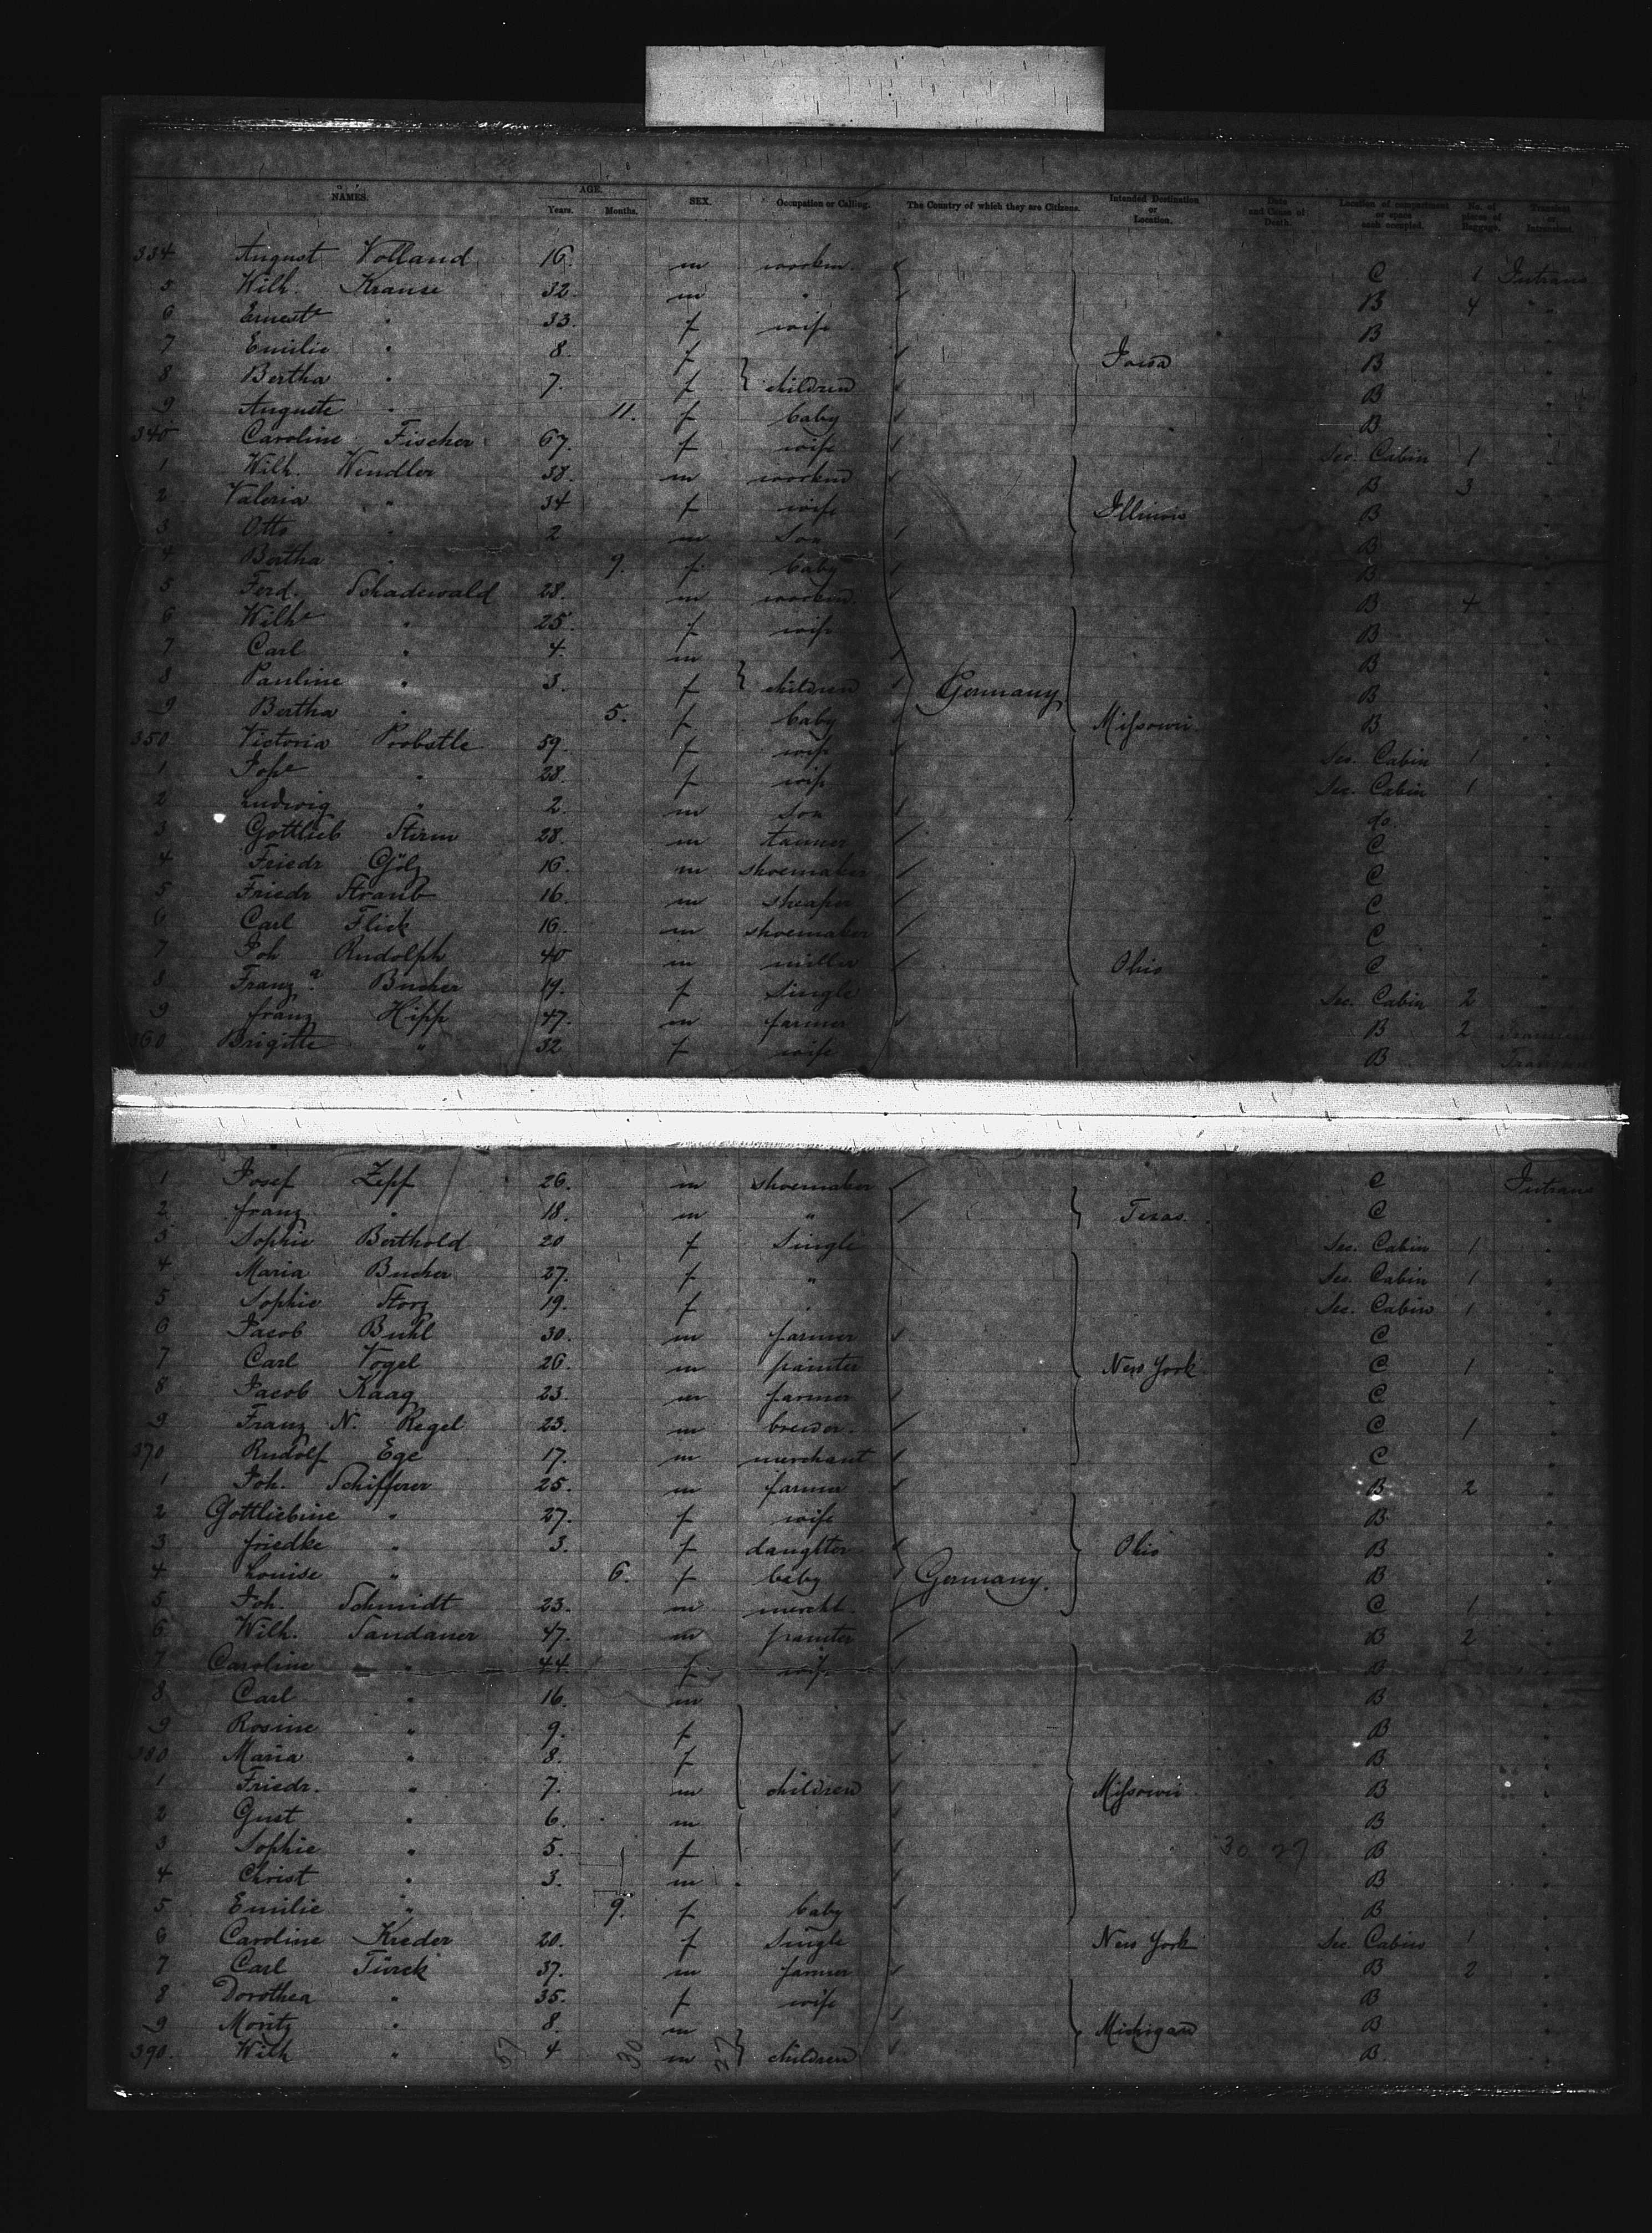 NAMES. AGE. SEX. Occupation or Calling. The Country of which they are Citizens. Intended Destination or Location. Date and Cause of Death. Location of compartment or space each occupied. No. of pieces of Baggage. Transient or Intransient.
Years. Months.
334 August Volland 16. m workm. C 1 Intrans
5 Wilh. Krause 32. m " B 4 "
6 Ernest " 33. f wife B "
7 Emilie " 8. f Iowa B "
8 Bertha " 7. f children B "
9 Auguste " 11. f baby B "
340 Caroline Fischer 67. f wife Sec. Cabin 1 "
1 Wilh. Wendler 38. m workm B 3 "
2 Valeria " 34 f wife Illinois B "
3 Otto " 2 m son B "
4 Bertha " 9. f. baby B "
5 Ferd. Schadewald 28. m workm. B 4 "
6 Wilh " 25. f wife B "
7 Carl " 4. m B "
8 Pauline " 3. f children Germany B "
9 Bertha " 5. f baby Missouri B "
350 Victoria Probstle 59. f wife Sec. Cabin 1 "
1 " 28. f wife Sec. Cabin 1 "
2 Ludwig " 2. m son do. "
3 Gottlieb Stirm 28. m tanner C "
4 Friedr Gölz 16. m shoemaker C "
5 Friedr Straub 16. m C "
6 Carl Flick 16. m shoemaker C "
7 Joh Rudolph 40 m miller Ohio C "
8 Franz a Bucher 19. f single Sec. Cabin 2 "
9 franz Hipp 47. m farmer B 2
360 Brigitte " 32 f wife B
1 Josef Zepf 26. m shoemaker C Intrans
2 franz " 18. m " Texas. C "
3 Sophie Berthold 20 f single Sec. Cabin 1 "
4 Maria Bucher 27. f " Sec. Cabin 1 "
5 Sophie Storz 19. f " Sec. Cabin 1 "
6 Jacob Buhl 30. m farmer C "
7 Carl Vogel 26 m painter New York C 1 "
8 Jacob Kaag 23. m farmer C "
9 Franz N. Regel 23. m brewer. C 1 "
370 Rudolf Ege 17. m merchant C "
1 Joh. Schifferer 25. m farmer B 2 "
2 Gottliebine " 27. f wife B "
3 friedke " 3. f daughter Ohio B "
4 Louise " 6. f baby Germany. B "
5 Joh. Schmidt 23. m mercht. C 1 "
6 Wilh. Sandaner 47. m painter B 2 "
7 Caroline " 44. f wife B "
8 Carl " 16. m B "
9 Rosine " 9. f B "
380 Maria " 8. f B "
1 Friedr. " 7. m children Missouri B "
2 Gust " 6. m B "
3 Sophie " 5. f 30 27 B "
4 Christ " 3. m B "
5 Emilie " 9. f baby B "
6 Caroline Kreder 20. f single New York Sec. Cabin 1 "
7 Carl Türck 37. m farmer B 2 "
8 Dorothea " 35. f wife B "
9 Moritz " 8. m Michigan B "
390. Wilh " 57 4 30 m 27 children B. "